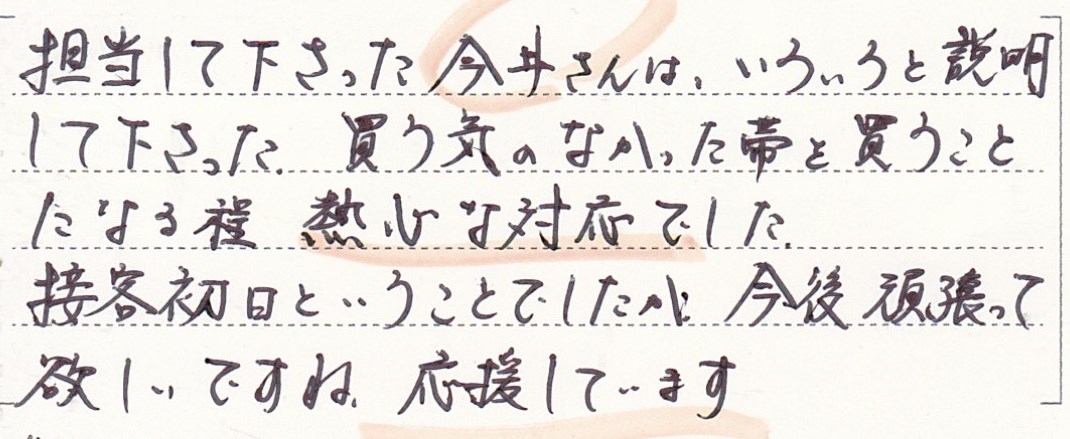 担当して下さった今井さんは、いろいろと説明
して下さった。買う気のなかった帯を買うこと
になる程 熱心な対応でした。
接客初日ということでしたが、今後頑張って
欲しいですね。応援しています